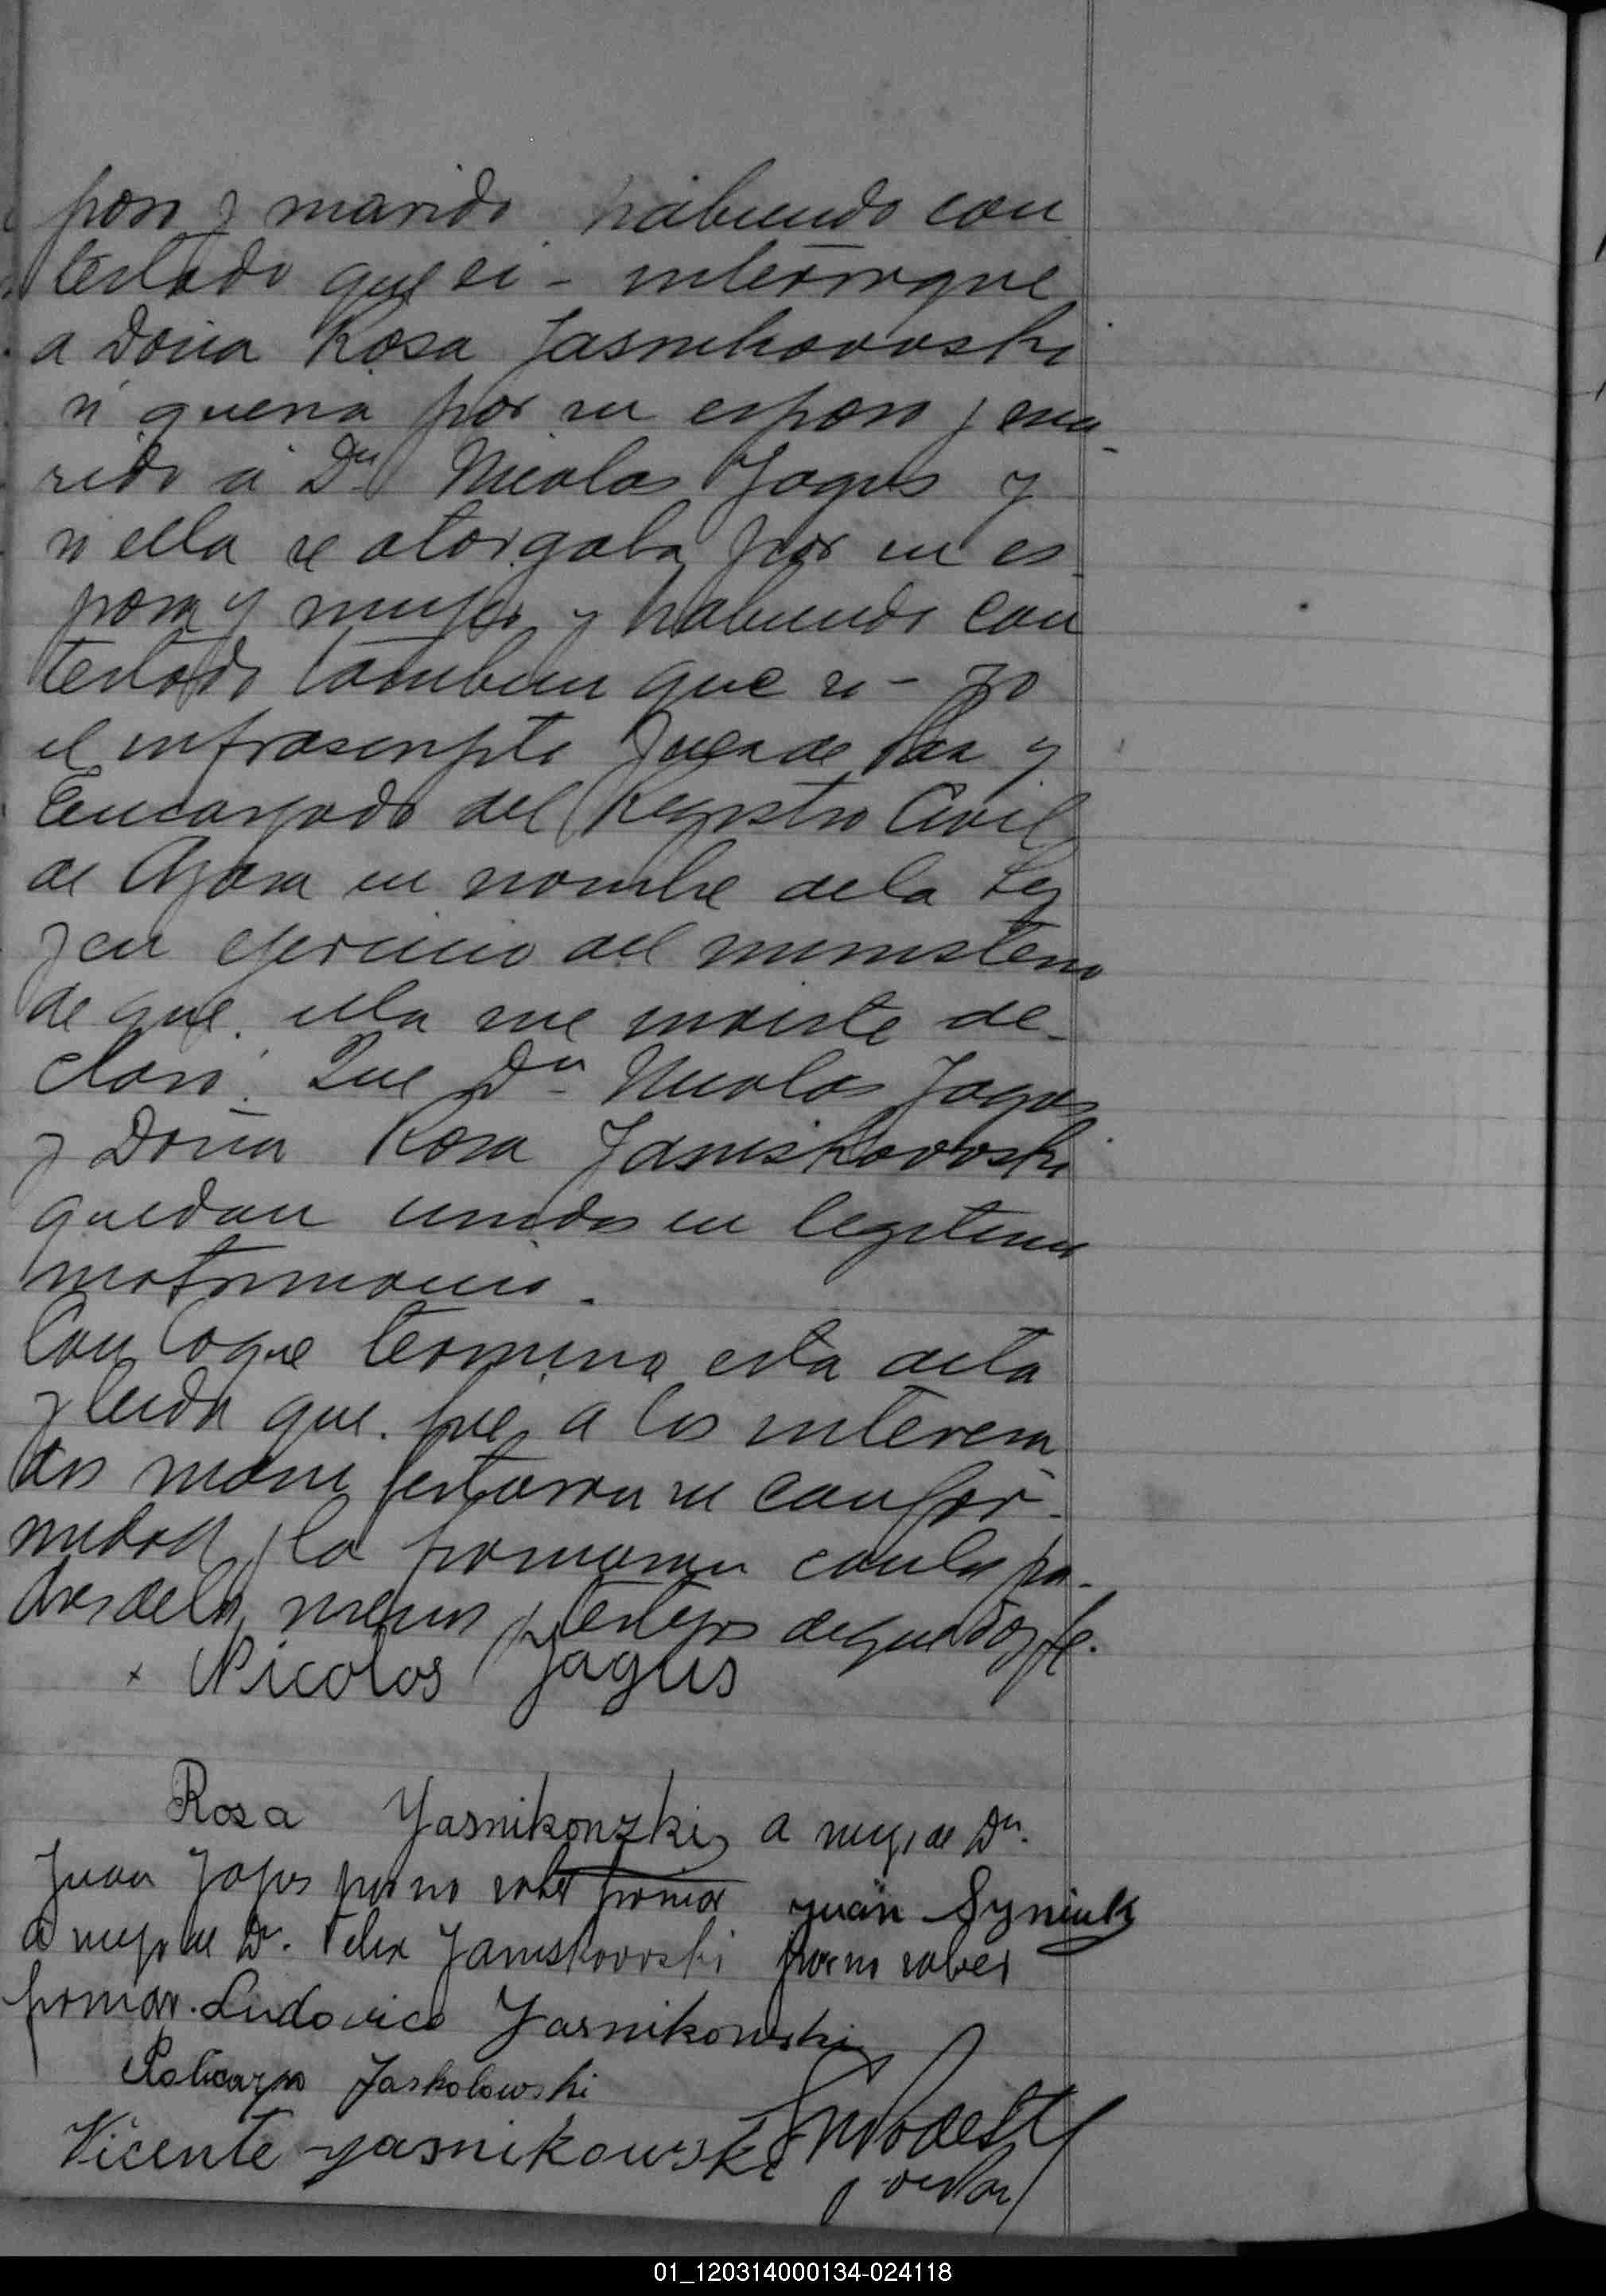 poso y marido habiendo con
testado que si - interrogue
a Doña Rosa Jasnikovvski
si queria por su esposo y ma-
rido á Dn Nicolas Jagus y
si ella se otorgaba por su es
posa y mujer y habiendo con
testado tambien que si - yo
el infrascripto Juez de Paz y
Encargado del Registro Civil
de Azara en nombre de la Ley
y en ejercicio del ministerio
de que ella me inviste de-
claro: Que Dn Nicolas Jagus
y Doña Rosa Janiskovvski
quedan unidos en legitimo
matrimonio.
Con loque termino esta acta
y leida que fue a los interesa
dos manifestaron su confor-
midad y la firmaron con los pa-
dres de los mismos y testigos de que doy fe.
x Nicolos Jagus
Rosa Yasnikonzki a ruego de Dn.
Juan Jagus por no saber firmar Juan Syniuk
a ruego de Dn. Felix Janiskovvski por no saber
firmar. Ludovico Jasnikowski
Policarpo Jaskolowski
Vicente Yasnikowski